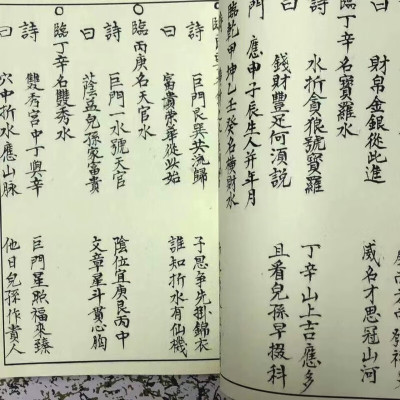 曰 財帛金銀從此進 威名才思冠山河
臨丁辛名寶羅水
詩 水折貪狼號寶羅 丁辛山上吉應多
曰 錢財豐足何須說 且看兒孫早掇科
門 應申子辰生人并年月
臨乾甲坤乙壬癸名橫財水
詩 巨門艮巽共流歸 子思爭先掛錦衣
曰 富貴榮華從此始 誰知折水有仙機
○臨丙庚名天官水
詩 巨門一水號天官 陰位宜庚艮丙中
曰 蔭益兒孫家富貴 文章星斗貫心胸
○臨丁辛名雙秀水
詩 雙秀宮中丁與辛 巨門星照福來臻
曰 穴中折水應山脉 他日兒孫作貴人